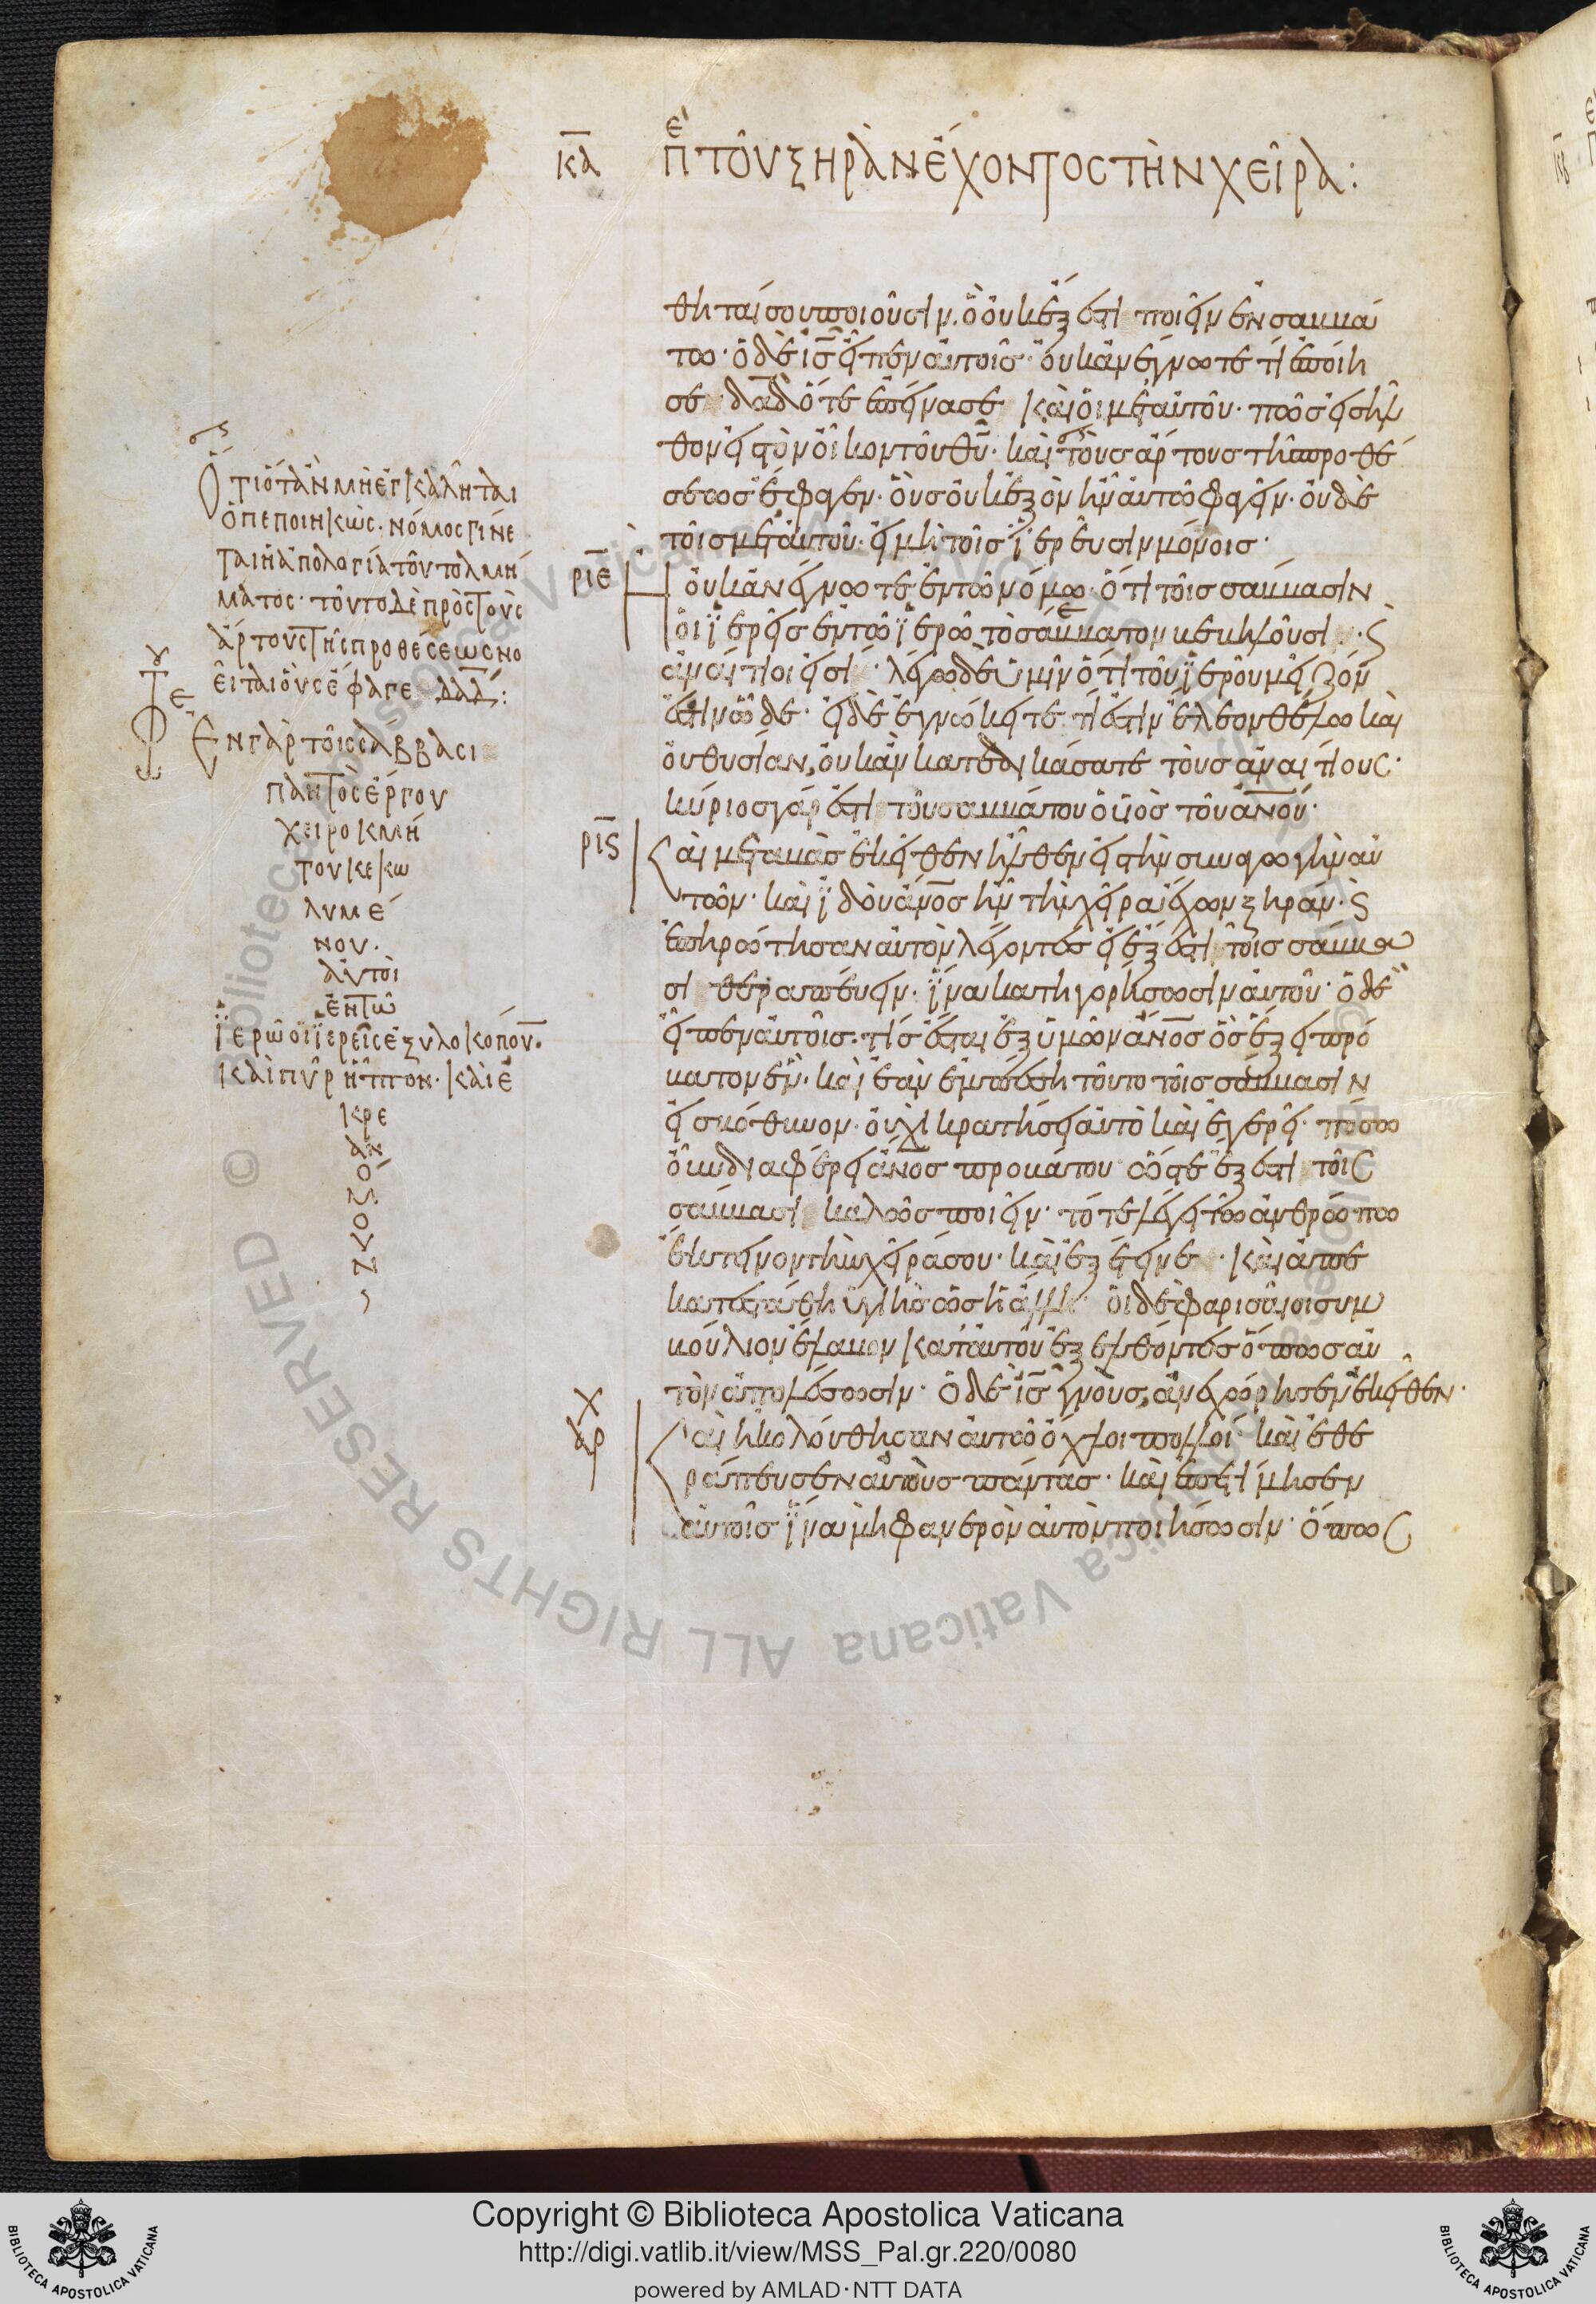 κα ἐπὶ τοῦ ξηρὰν ἔχοντος τὴν χεῖρα:
θηταί σου ποιοῦσιν. ὃ οὐκ ἔξεστι ποιεῖν ἐν σαββά
τω· ὁ δὲ ις εἶπεν αὐτοῖς· οὐκ ἀνέγνωτε τί ἐποίη
σε δαδ ὅτε ἐπείνασε καὶ οἱ μετ' αὐτοῦ· πῶς εἰσῆλ
θον εἰς τὸν οἶκον τοῦ θυ· καὶ τοὺς ἄρτους τῆς προθέ
σεως ἔφαγεν· οὓς οὐκ ἐξὸν ἦν αὐτῶ φαγεῖν· οὐδὲ
τοῖς μετ' αὐτοῦ· εἰ μὴ τοῖς ἱερεῦσιν μόνοις·
ριε οὐκ ἀνέγνωτε ἐν τῶ νόμω· ὅτι τοῖς σάββασιν
οἱ ἱερεῖς ἐν τῶ ἱερῶ τὸ σάββατον βεβηλοῦσι· ς
ἀναίτιοί εἰσι· λέγω δὲ ὑμῖν ὅτι τοῦ ἱεροῦ μεῖζόν
ἐστιν ὧδε· εἰ δὲ ἐγνώκειτε τί ἐστιν ἔλεον θέλω καὶ
οὐ θυσίαν, οὐκ ἂν κατεδικάσατε τοὺς ἀναιτίους·
κύριος γάρ ἐστι τοῦ σαββάτου ὁ υἱὸς τοῦ ανου·
ρις αὶ μεταβὰς ἐκεῖθεν ἦλθεν εἰς τὴν συναγωγὴν αὐ
τῶν· καὶ ἰδοὺ ανος ἦν τὴν χεῖρα ἔχων ξηράν· ς
ἐπηρώτησαν αὐτὸν λέγοντες εἰ ἔξεστι τοῖς σάββα
σι θεραπεύειν· ἵνα κατηγορήσωσιν αὐτοῦ· ὁ δὲ
εἶπεν αὐτοῖς· τίς ἔσται ἐξ ὑμῶν ανος ὃς ἕξει πρό
βατον ἕν· καὶ ἐὰν ἐμπέση τοῦτο τοῖς σάββασιν
εἰς βόθυνον· οὐχὶ κρατήσει αὐτὸ καὶ ἐγερεῖ· πόσω
οὖν διαφέρει ανος προβάτου ὥστε ἔξεστι τοῖς
σάββασι καλῶς ποιεῖν· τότε λέγει τῶ ἀνθρώπω
ἔκτεινον τὴν χεῖρά σου· καὶ ἐξέτεινε· καὶ ἀπε
κατεστάθη ὑγιὴς ὡς ἡ ἄλλη· οἱ δὲ φαρισαῖοι συμ
βούλιον ἔλαβον κατ' αὐτοῦ ἐξελθόντες ὅπως αὐ
τὸν ἀπολέσωσιν· ὁ δὲ ις γνοὺς, ἀνεχώρησεν ἐκεῖθεν·
χ αρ αὶ ἠκολούθησαν αὐτῶ ὄχλοι πολλοί· καὶ ἐθε
ράπευσεν αὐτοὺς πάντας· καὶ ἐπετίμησεν
αὐτοῖς ἵνα μὴ φανερὸν αὐτὸν ποιήσωσιν· ὅπως
Ὅτι ὅταν μὴ ἐγκαλῆται
ὁ πεποιηκὼς· νόμος γίνε
ται ἡ ἀπολογία τοῦ τολμή
ματος· τοῦτο δὲ πρὸς τοὺς
ἄρτους τῆς προθέσεως νο
εῖται οὓς ἔφαγε δαδ:
Ἐν γὰρ τοῖς σάββασι
παντὸς ἔργου
χειροκμή
του κεκω
λυμέ
νου·
αὐτοὶ
ἐν τῶ
ἱερῶ οἱ ἱερεῖς ἐξυλοκόπουν·
καὶ πῦρ ἧπτον· καὶ ἐ
κρε
αν
ό
ζ
ο
υ
ν
Copyright © Biblioteca Apostolica Vaticana
http://digi.vatlib.it/view/MSS_Pal.gr.220/0080
powered by AMLAD·NTT DATA
BIBLIOTECA APOSTOLICA VATICANA
BIBLIOTECA APOSTOLICA VATICANA